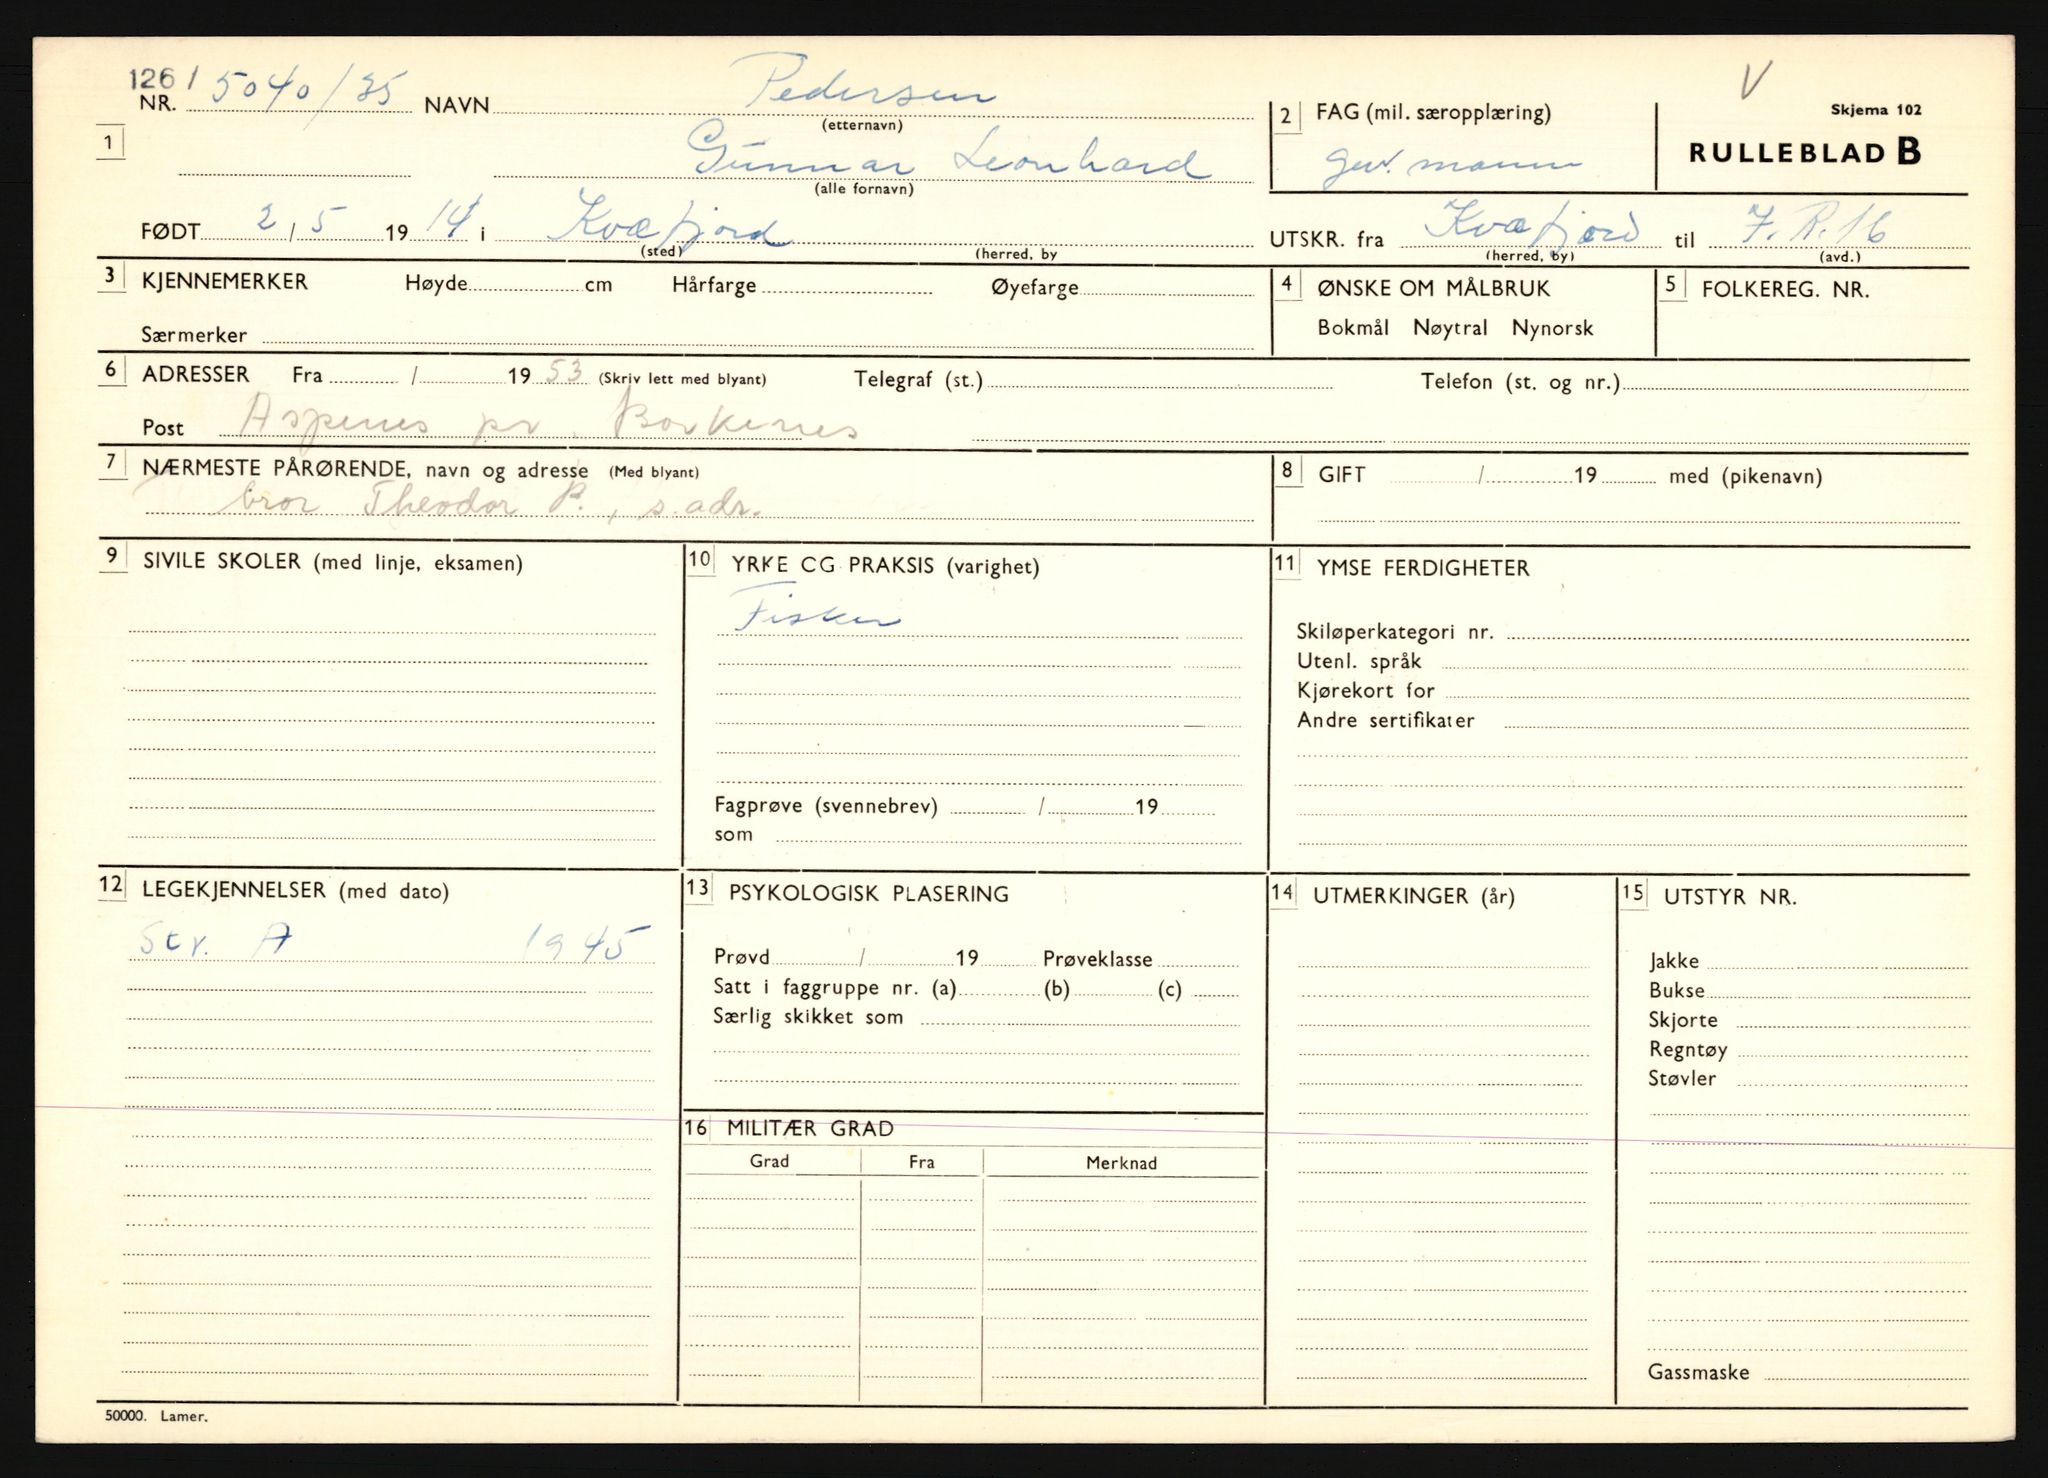 126/ 5040/35 NR. NAVN Pedersen V
(etternavn) 2 FAG (mil. særopplæring) Skjema 102
1 Gunnar Leonhard gev. mann RULLEBLAD B
(alle fornavn)
FØDT 2/5 1914 i Kvæfjord UTSKR. fra Kvæfjord til I.R.16
(sted) (herred, by (herred, by) (avd.)
3 KJENNEMERKER Høyde cm Hårfarge Øyefarge 4 ØNSKE OM MÅLBRUK 5 FOLKEREG. NR.
Særmerker Bokmål Nøytral Nynorsk
6 ADRESSER Fra / 19 53 (Skriv lett med blyant) Telegraf (st.) Telefon (st. og nr.)
Post Aspenes pr. Borkenes
7 NÆRMESTE PÅRØRENDE, navn og adresse (Med blyant) 8 GIFT / 19 med (pikenavn)
bror Theodor P., s.adr.
9 SIVILE SKOLER (med linje, eksamen)
10 YRKE CG PRAKSIS (varighet)
Fisker
Fagprøve (svennebrev) / 19
som
11 YMSE FERDIGHETER
Skiløperkategori nr.
Utenl. språk
Kjørekort for
Andre sertifikater
12 LEGEKJENNELSER (med dato)
Str. A 1945
13 PSYKOLOGISK PLASERING
Prøvd / 19 Prøveklasse
Satt i faggruppe nr. (a) (b) (c)
Særlig skikket som
16 MILITÆR GRAD
Grad Fra Merknad
14 UTMERKINGER (år)
15 UTSTYR NR.
Jakke
Bukse
Skjorte
Regntøy
Støvler
Gassmaske
50000. Lamer.